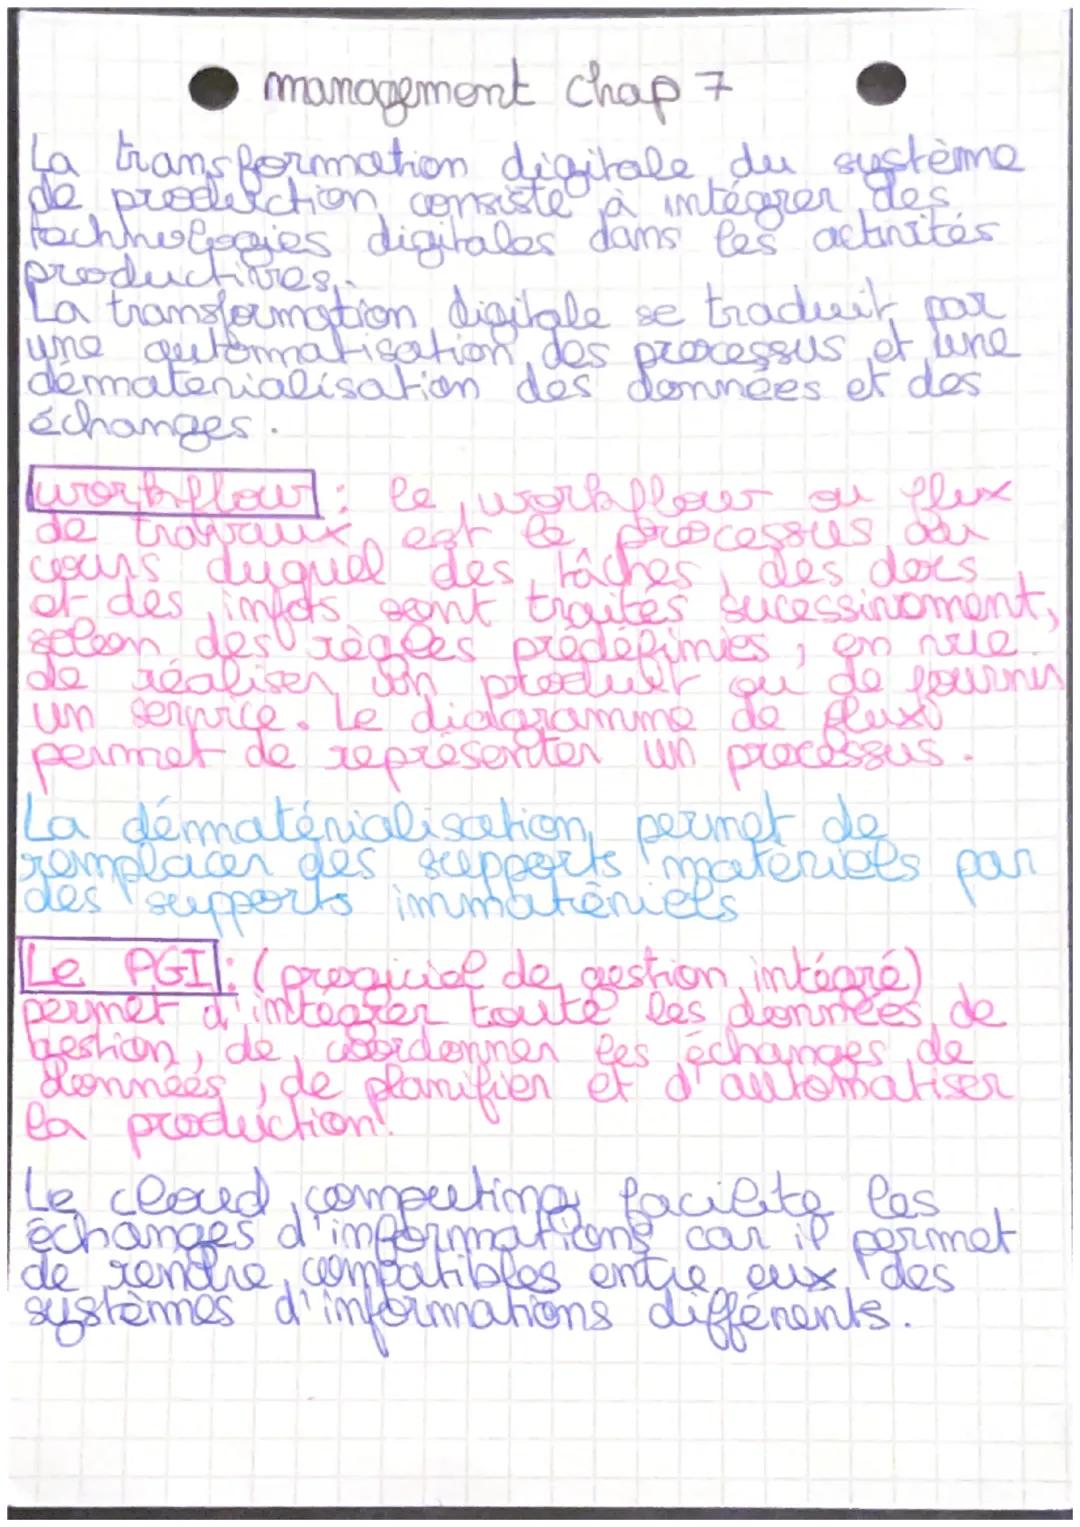 management chap 7
La transformation digitale du système
de production consiste à intégrer des
technologies digitales dans les activités
productives.
La transformation digitale se traduit par
une automatisation des processus et une
dématérialisation des données et des
échanges.
workflow : le workflow ou flux
de travaux est le processus au
cours duquel des tâches, des docs
et des infos sont traités sucessivement,
selon des règles prédéfinies, en vue
de réaliser un produit ou de fournir
un service. Le diagramme de flux
permet de représenter un processus.
La dématérialisation permet de
remplacer des supports matériels par
des supports immatériels
Le PGI : (progiciel de gestion intégré)
permet d'intégrer toute les données de
gestion, de coordonner les échanges de
données, de planifier et d'automatiser
la production.
Le cloud computing facilite les
échanges d'informations car il permet
de rendre compatibles entre eux des
systèmes d'informations différents.